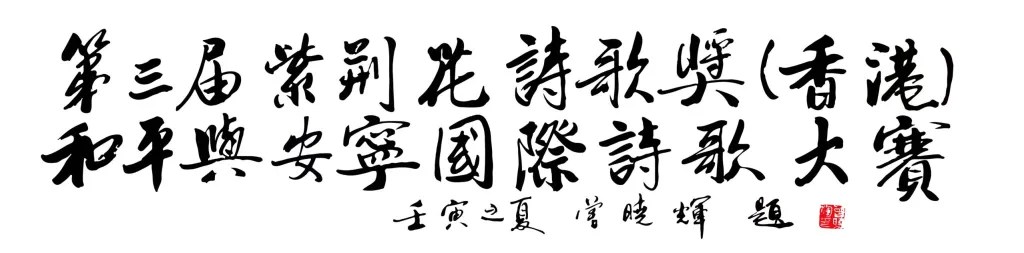 第三届紫荆花詩歌奬(香港)
和平與安寧國際詩歌大賽
壬寅之夏 曾曉輝 題